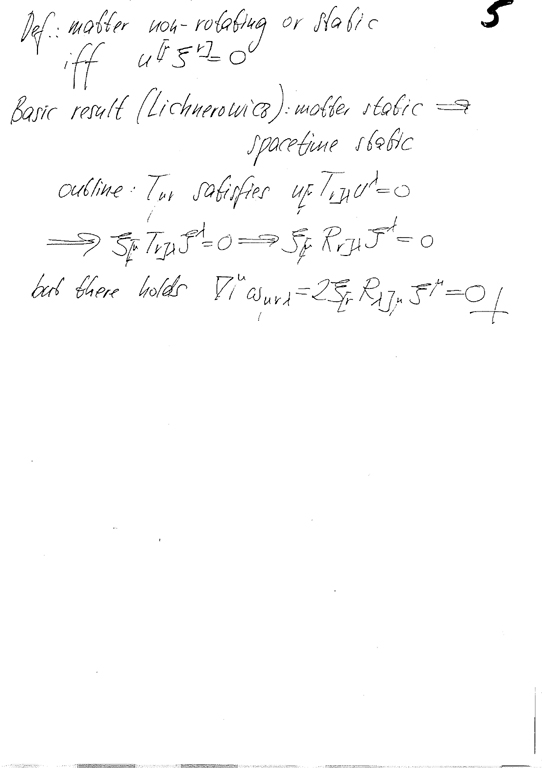 5
Def.: matter non-rotating or static
iff u^{[μ} ξ^{ν]} = 0
Basic result (Lichnerowicz): matter static ⇒
spacetime static
outline: T_{μν} satisfies u_{[μ} T_{ν]λ} u^λ = 0
⇒ ξ_{[μ} T_{ν]λ} ξ^λ = 0 ⇒ ξ_{[μ} R_{ν]λ} ξ^λ = 0
but there holds ∇^μ ω_{μνλ} = 2 ξ_{[ν} R_{λ]μ} ξ^μ = 0